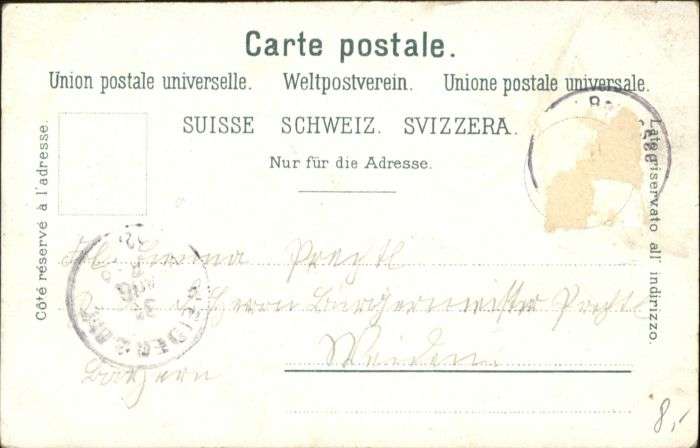 Carte postale.
Union postale universelle. Weltpostverein. Unione postale universale.
SUISSE SCHWEIZ. SVIZZERA.
Nur für die Adresse.
Côté réservé à l'adresse.
Lato riservato all' indirizzo.
Prechtl
Herrn Bürgermeister Prechtl
Weiden
Bayern
8,-